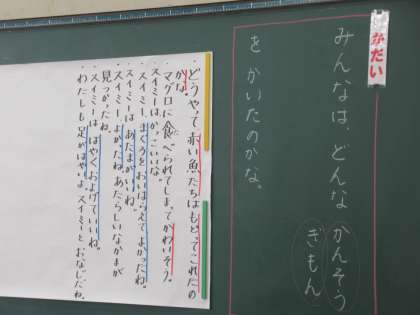 かだい
みんなは、どんな かんそう
ぎもん
を かいたのかな。
・どうやって赤い魚たちはもどってこれたの
かな。
・マグロに食べられてしまってかわいそう。
・スイミーは、かっこいいな。
・スイミー、まぐろをおいはらえてよかったね。
・スイミーは、あたまがいいね。
・スイミー、よかったね。あたらしいなかまが
見つかったね。
・スイミーは、はやくおよげていいね。
わたしも足がはやいよ。スイミーとおなじだね。